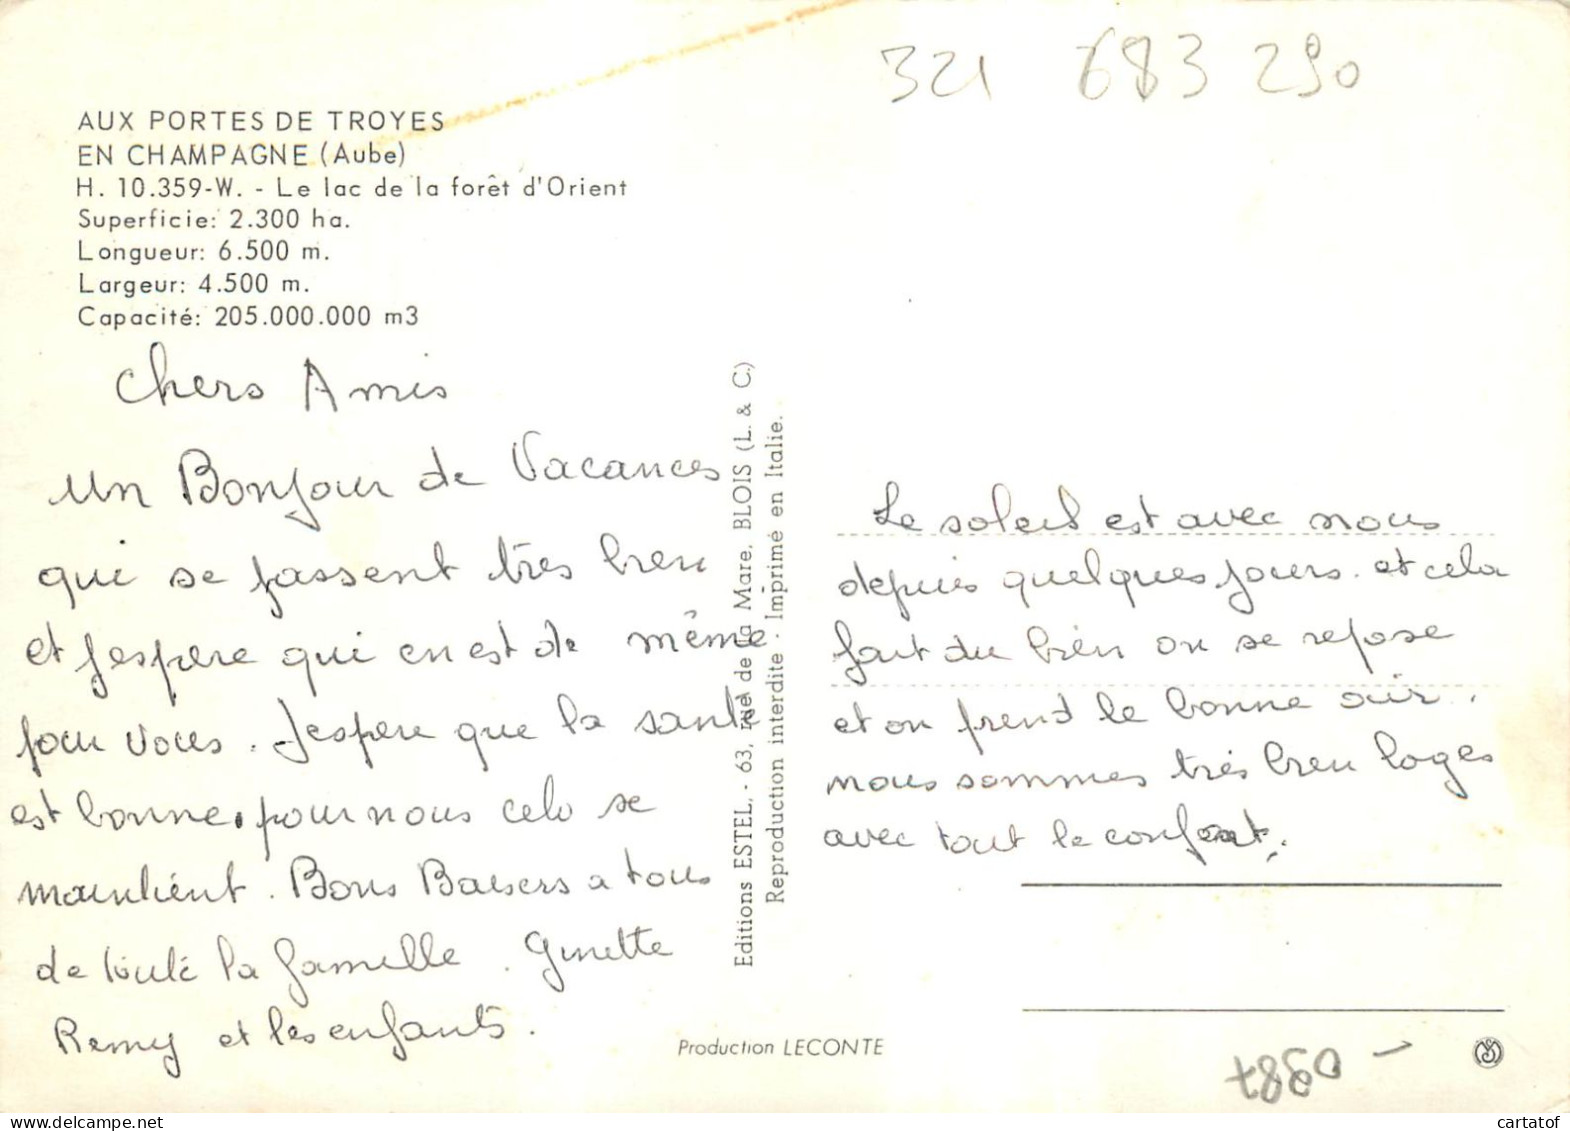 321 683 290
AUX PORTES DE TROYES
EN CHAMPAGNE (Aube)
H. 10.359-W. - Le lac de la forêt d'Orient
Superficie: 2.300 ha.
Longueur: 6.500 m.
Largeur: 4.500 m.
Capacité: 205.000.000 m3
Chers Amis
Un Bonjour de Vacances
qui se passent très bien
et j'espère qui en est de même
pour vous. J'espère que la santé
est bonne. pour nous cela se
maintient. Bons Baisers a tous
de toute la famille. Ginette
Remy et les enfants.
Editions ESTEL. - 63, rue de la Mare. BLOIS (L. & C.)
Reproduction interdite - Imprimé en Italie.
Le soleil est avec nous
depuis quelques jours. et cela
fait du bien on se repose
et on prend le bonne air.
nous sommes très bien loges
avec tout le confort.
Production LECONTE
cartatof